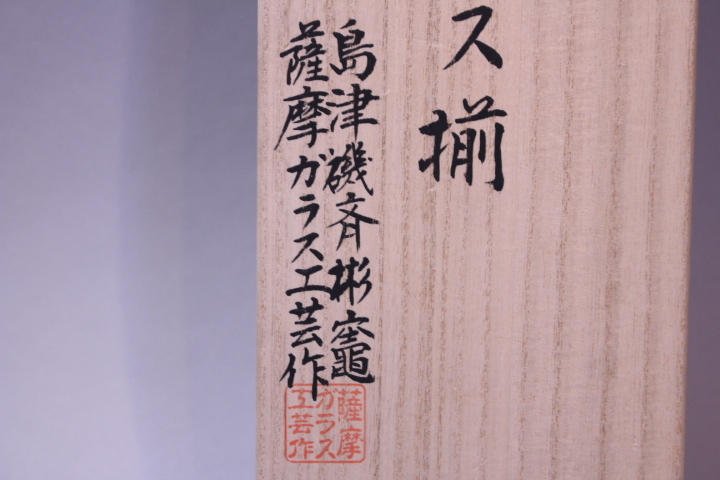 ス揃
島津磯斉彬竈
薩摩ガラス工芸作
薩摩
ガラス
工芸作